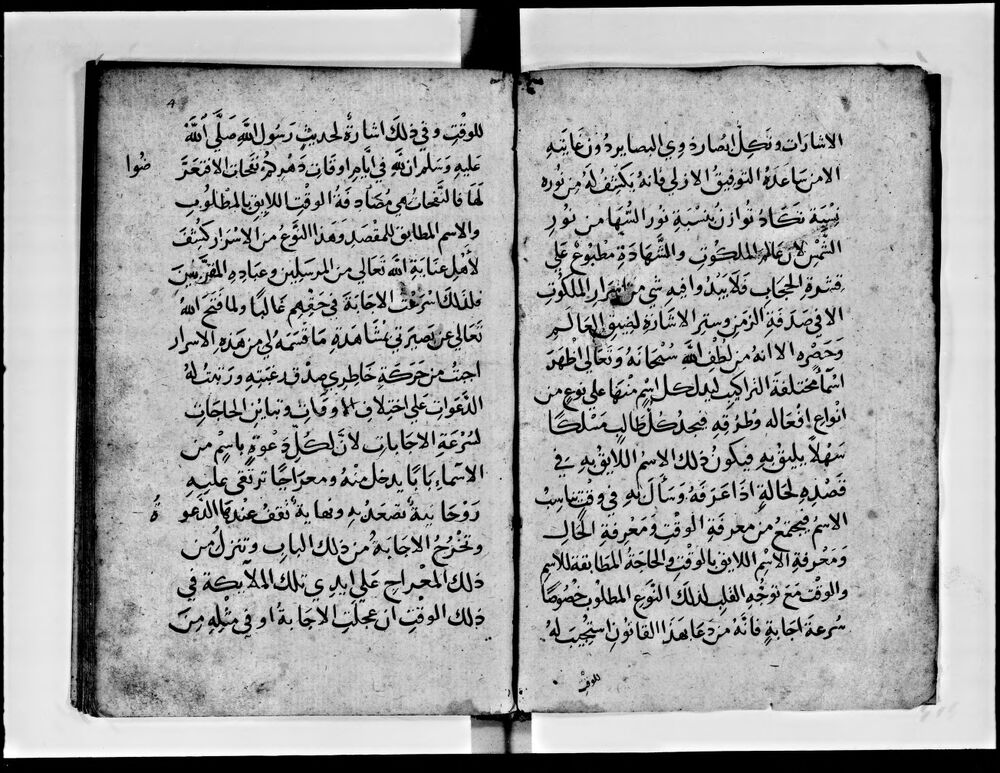 الاشارات وتكل ابصار ذوي البصاير دون غايته
الا من ساعده التوفيق الازلي فانه يكشف له من نوره
نسبة تكاد توازن بنسبة نور السُّها من نور
الشمس لان عالم الملكوت والشهادة مطبوع علي
قشرة الحجاب فلا يبدوا فيه شي من اسرار الملكوت
الا في صدفة الرمز وستر الاشارة لضيق العالم
وحصره الا انه من لطف الله سبحانه وتعالي اظهر
اسماً مختلفة التراكيب ليدل كل اسم منها علي نوع من
انواع افعاله وطرقه فيجد كل طالب مسلكا
سهلا يليق به فيكون ذلك الاسم اللايق به في
قصده لحالة اذا عرفه وسأل به في وقت يناسب
الاسم فيجمع من معرفة الوقت ومعرفة الحال
ومعرفة الاسم اللايق بالوقت والحاجة المطابقة للاسم
والوقت مع توجه القلب لذلك النوع المطلوب خصوصا
سرعة اجابة فانه من دعا بهذا القانون استجيب له
للوقت
4
للوقت وفي ذلك اشارة لحديث رسول الله صلي الله
عليه وسلم ان لله في ايام اوقات دهركم نفحات الا فتعرّ
ضوا
لها فالنفحات هي مصادفة الوقت اللايق بالمطلوب
والاسم المطابق للمقصد وهذا النوع من الاسرار كشف
لاهل عناية الله تعالي من المرسلين وعباده المقربين
فلذلك اسرعت الاجابة في حقهم غالبا ولما فتح الله
تعالي عن بصيرتي بمشاهدة ما قسمه لي من هذه الاسرار
اجبت من حركة خاطري صدق رغبته ورتبت له
الدعوات علي اختلاف الاوقات وتباين الحاجات
لسرعة الاجابات لان لكل دعوة باسم من
الاسماء بابا يدخل منه ومعراجا ترتقي عليه
روحانية تصعد به ونهاية تقف عندها الدعو
ة
وتخرج الاجابة من ذلك الباب وتنزل من
ذلك المعراج علي ايدي تلك الملايكة في
ذلك الوقت ان عجلت الاجابة او في مثله من